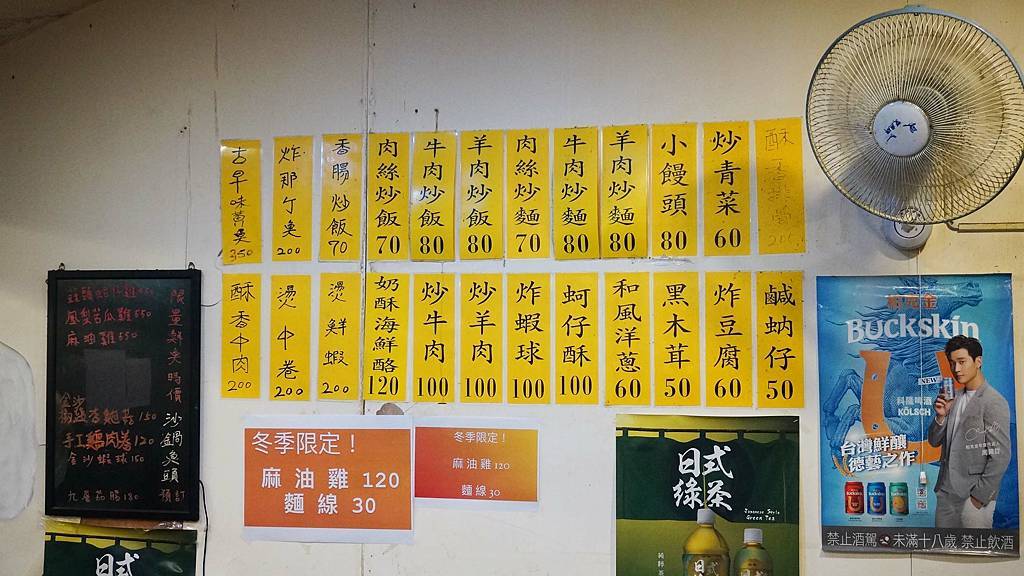 古早味黃魚 350
炸那個魚 200
香腸炒飯 70
肉絲炒飯 70
牛肉炒飯 80
羊肉炒飯 80
肉絲炒麵 70
牛肉炒麵 80
羊肉炒麵 80
小饅頭 80
炒青菜 60
酥香中肉 200
燙中卷 200
燙鮮蝦 200
奶酥海鮮酪 120
炒牛肉 100
炒羊肉 100
炸蝦球 100
蚵仔酥 100
和風洋蔥 60
黑木茸 50
炸豆腐 60
鹹蚋仔 50
限量鮮魚時價
沙鍋魚頭
預訂
鳳梨苦瓜雞 550
麻油雞 550
手工雞肉卷 120
金沙蝦球 150
九層茄腸 180
冬季限定！
麻油雞 120
麵線 30
冬季限定！
麻油雞 120
麵線 30
日式
綠茶
Japanese Style
Green Tea
日式
Buckskin
科隆啤酒
KÖLSCH
台灣鮮釀
德藝之作
禁止酒駕 未滿十八歲 禁止飲酒